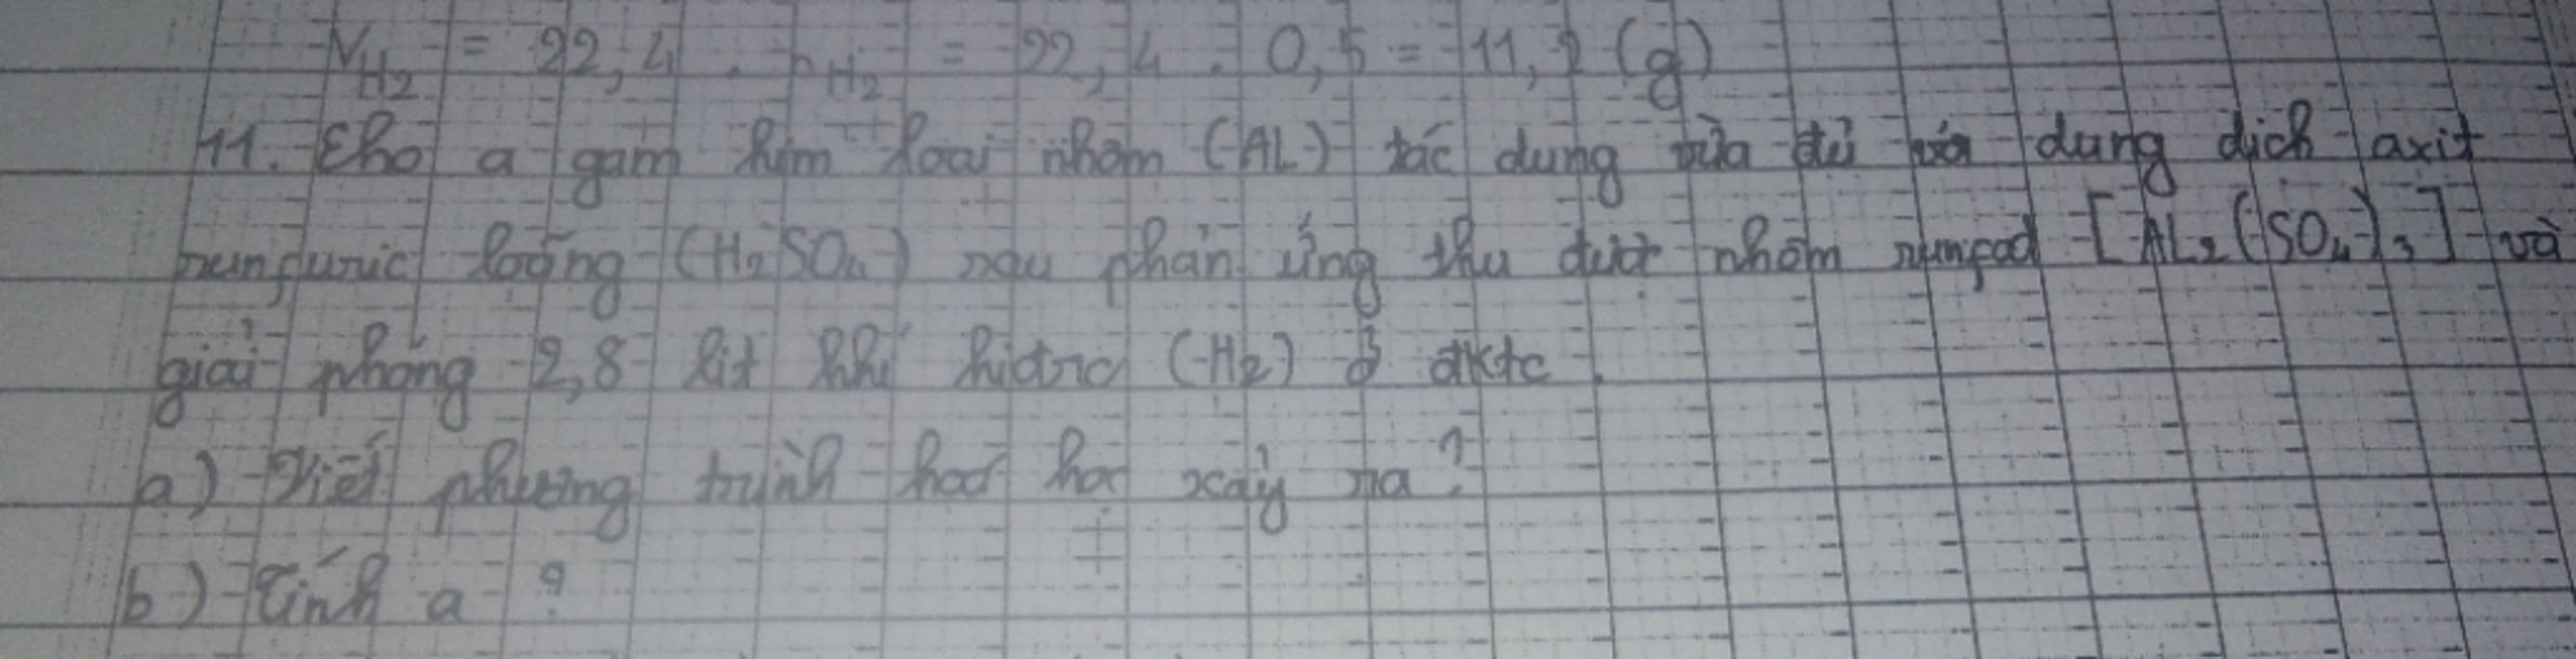 V_H2 = 22,4 . n_H2 = 22,4 . 0,5 = 11,2 (g)
11. Cho a gam kim loại nhôm (AL) tác dụng vừa đủ với dung dịch axit
sunfuric loãng (H2SO4) sau phản ứng thu được nhôm sunfat [AL2(SO4)3] và
giải phóng 2,8 lít khí hiđro (H2) ở đktc.
a) Viết phương trình hoá học xảy ra?
b) Tính a ?